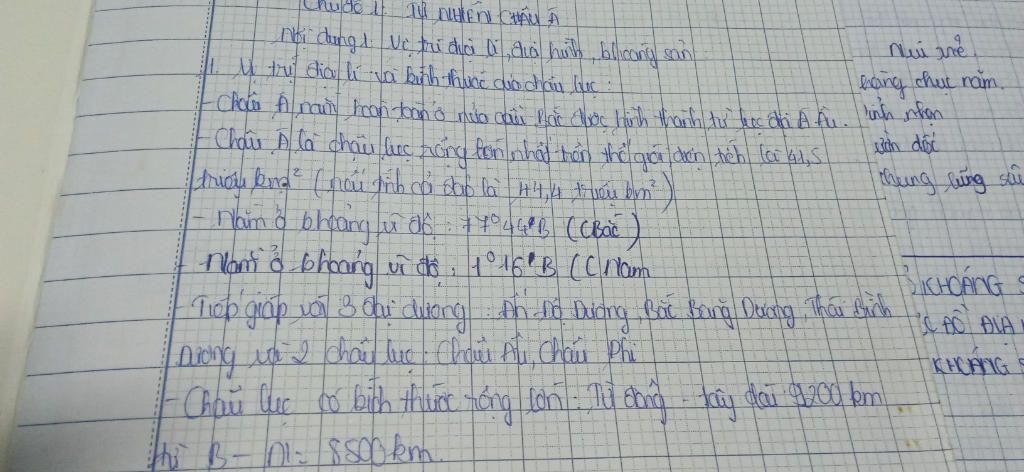 Chủ đề 1: Tự nhiên Châu Á
Nội dung 1 Vị trí địa lí, địa hình, khoáng sản
1. Vị trí địa lí và kích thước của châu lục:
- Châu Á nằm hoàn toàn ở nửa cầu Bắc được hình thành từ lục địa Á Âu.
- Châu Á là châu lục rộng lớn nhất trên thế giới diện tích là 41,5
triệu km² (nếu tính cả đảo là 44,4 triệu km²)
- Nằm ở khoảng vĩ độ: 77°44'B (CBắc)
- Nằm ở khoảng vĩ độ: 1°16'B (CNam
- Tiếp giáp với 3 đại dương: Ấn Độ Dương, Bắc Băng Dương, Thái Bình
Dương với 2 châu lục: Châu Âu, Châu Phi
- Châu lục có kích thước rộng lớn: Từ đông - tây dài 9200 km
thì B - N = 8500 km.
Núi trẻ.
hàng chục năm.
hình nhọn
vẫn đôi
thung lũng sâu
KHOÁNG S
CAO ĐỊA
KHOÁNG S